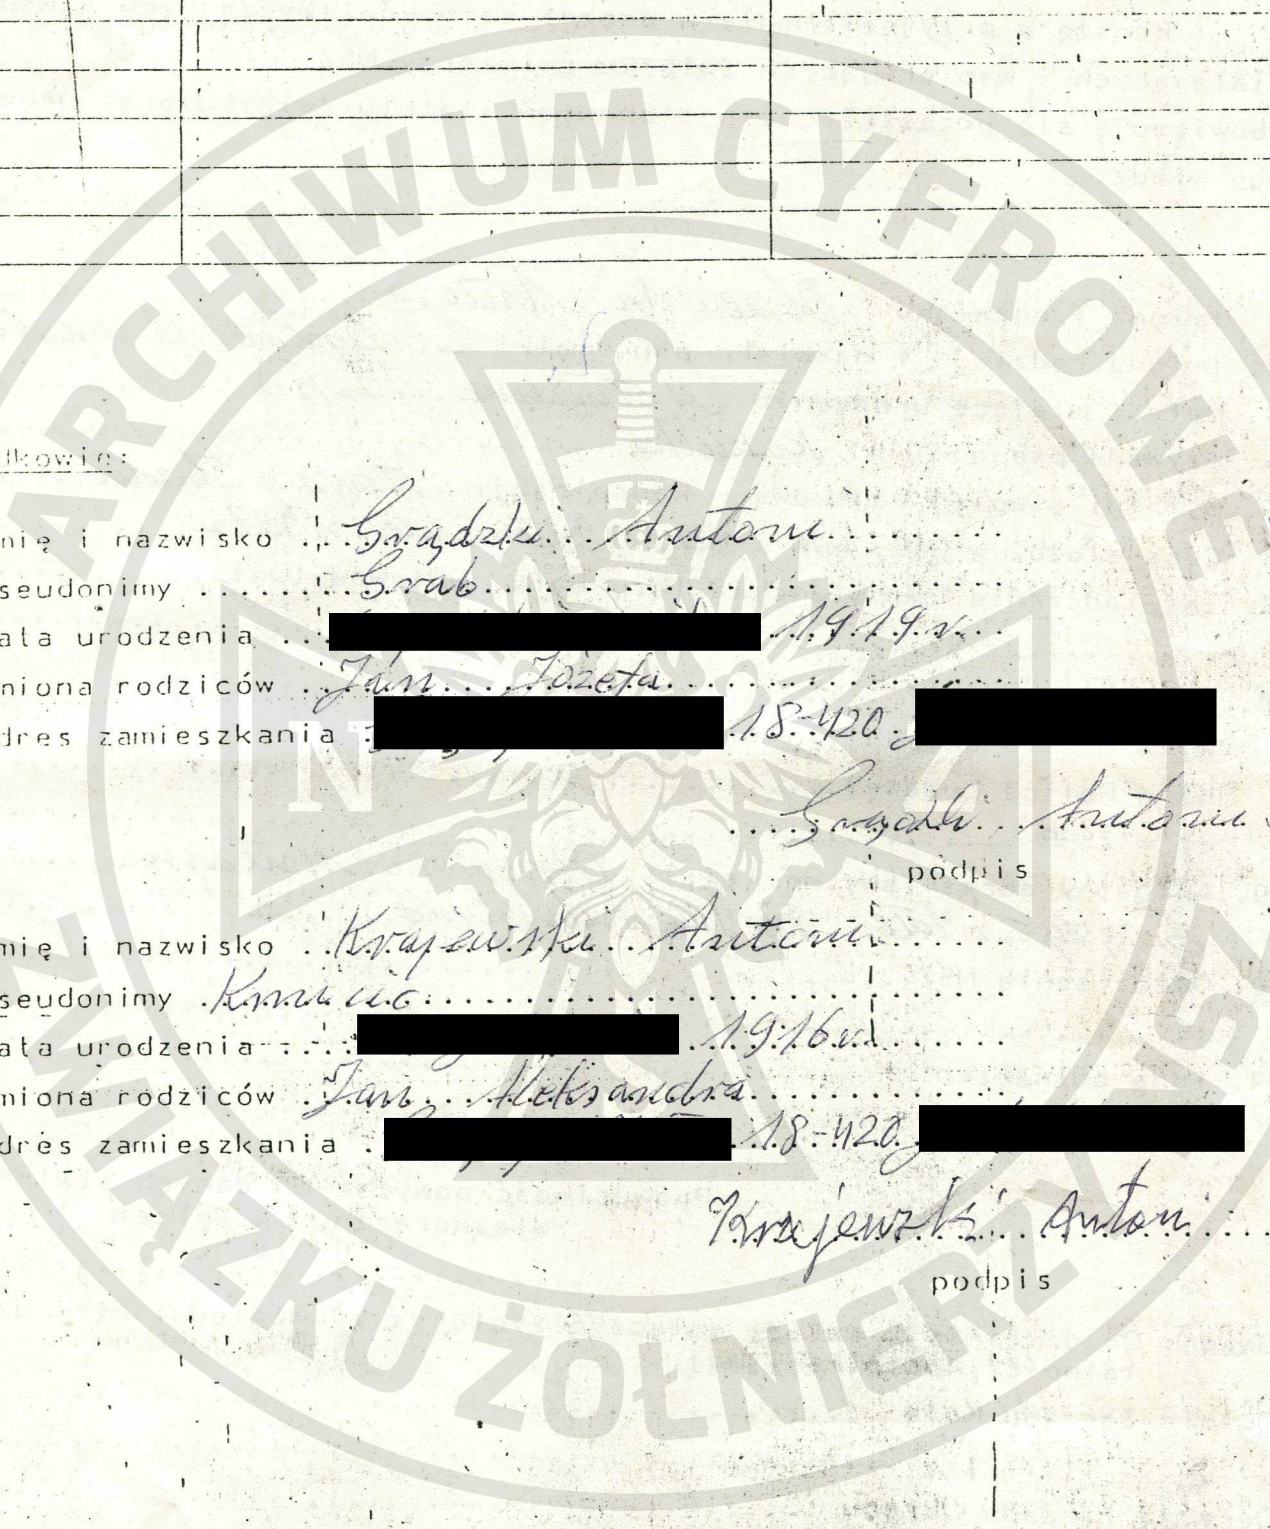 ARCHIWUM CYFROWE
ZWIĄZKU ŻOŁNIERZY NSZ
N Z
dkowie:
nię i nazwisko Grądzki Antoni
seudonimy Grab
ata urodzenia 1919 r.
niona rodziców Jan Józefa
dres zamieszkania 18-420
Grądzki Antoni
podpis
mię i nazwisko Krajewski Antoni
seudonimy Kmicic
ata urodzenia 1916 r.
niona rodziców Jan Aleksandra
dres zamieszkania 18-420
Krajewski Antoni
podpis